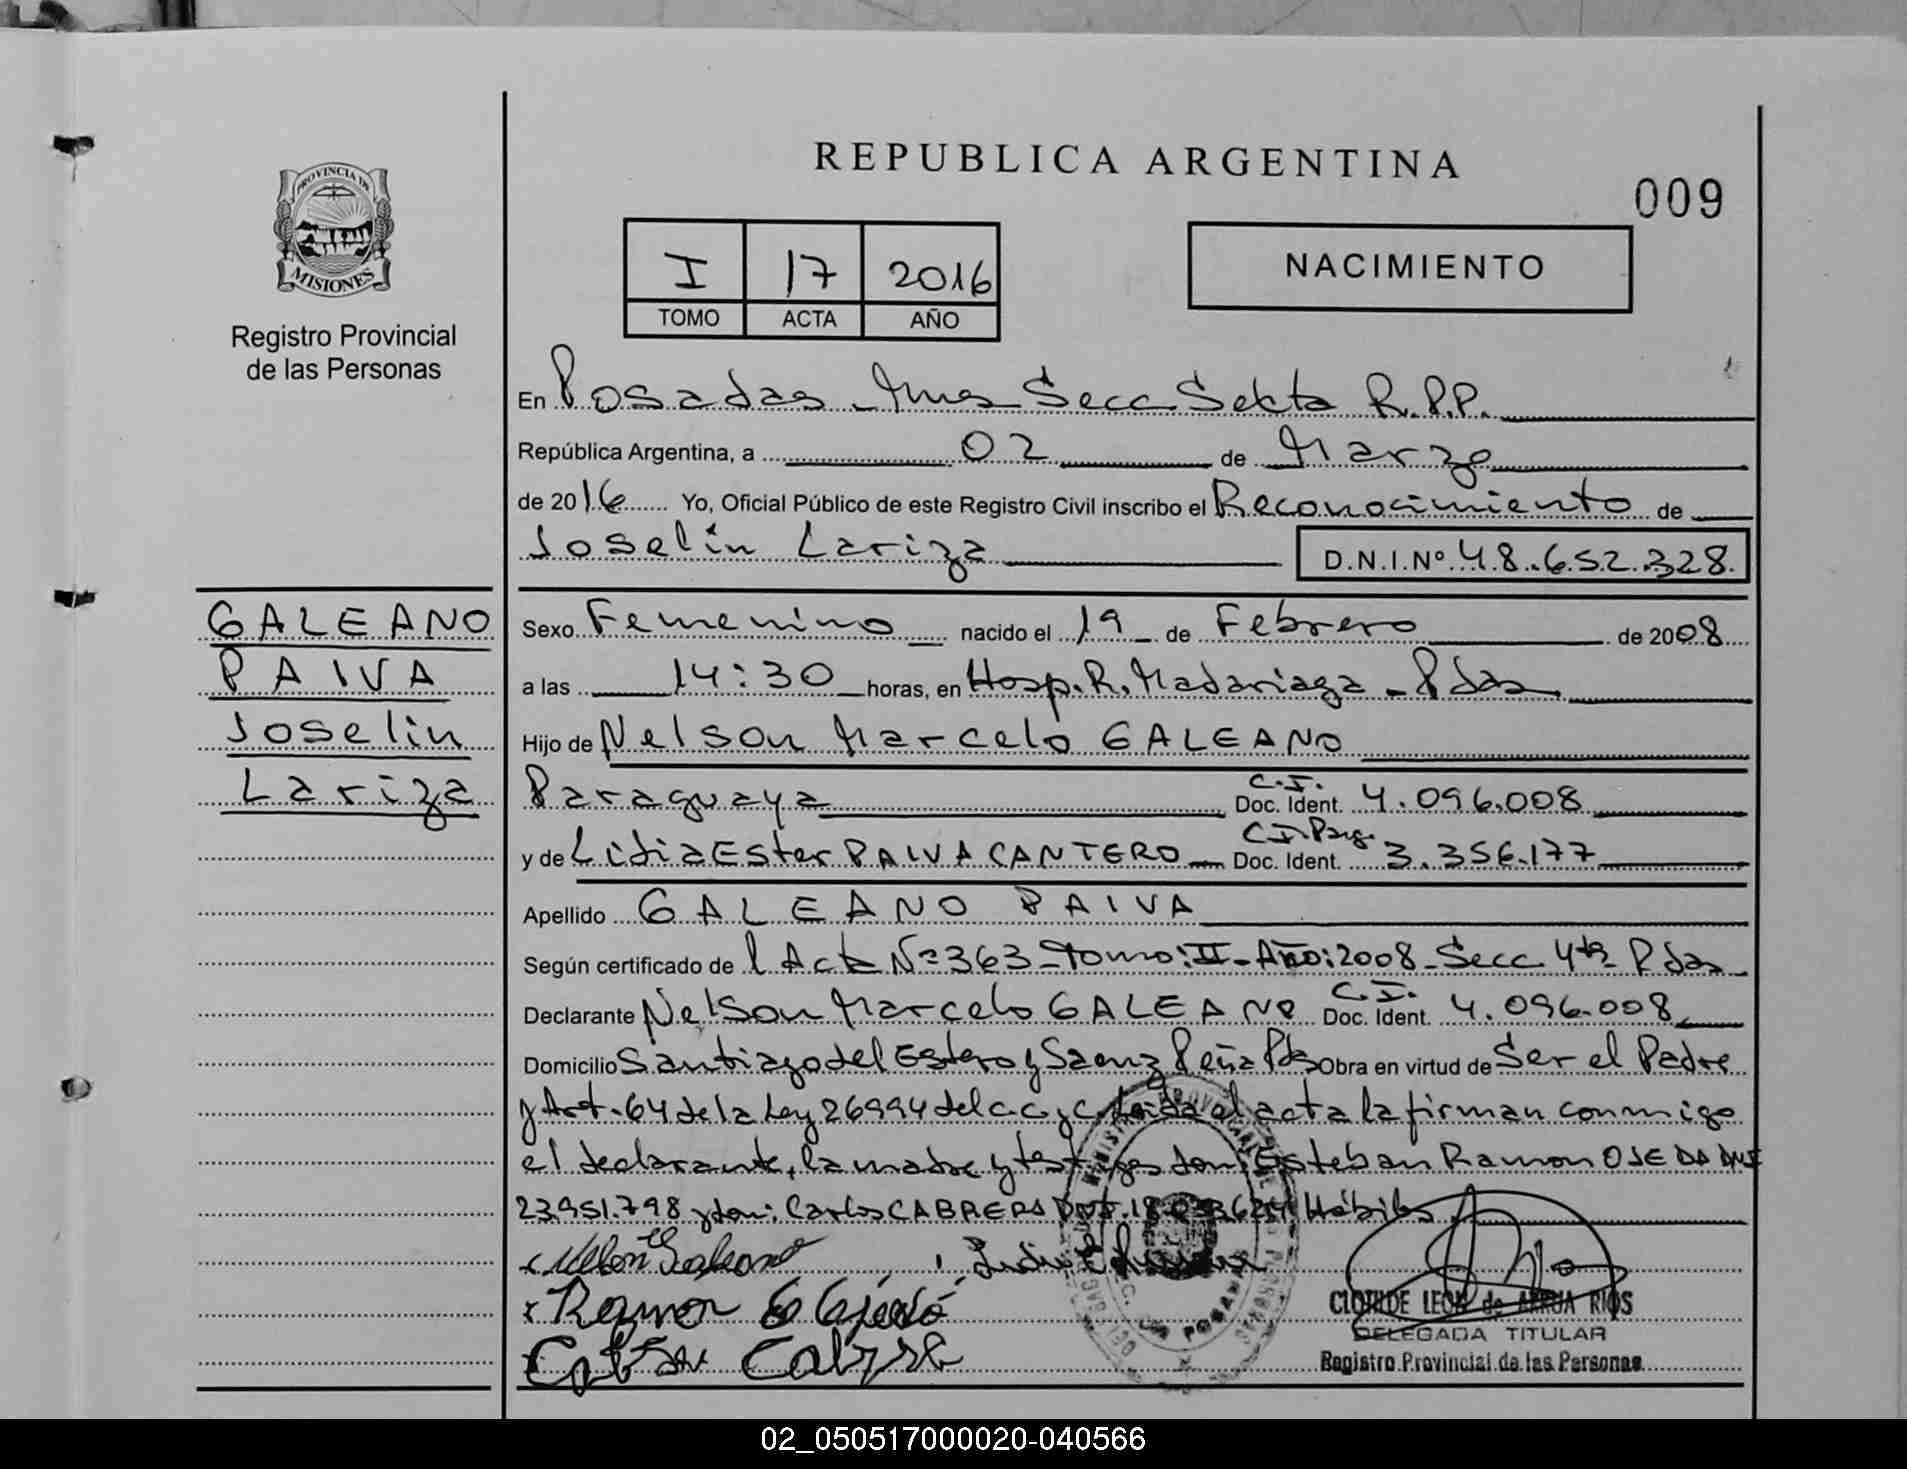 REPUBLICA ARGENTINA
009
PROVINCIA DE
MISIONES
Registro Provincial
de las Personas
I 17 2016
TOMO ACTA AÑO
NACIMIENTO
En Posadas Mnes Secc Sexta R.P.P.
República Argentina, a 02 de Marzo
de 2016 Yo, Oficial Público de este Registro Civil inscribo el Reconocimiento de
Joselin Lariza D.N.I.Nº 48.652.328
GALEANO
PAIVA
Joselin
Lariza
Sexo Femenino nacido el 19 de Febrero de 2008
a las 14:30 horas, en Hosp. R. Madariaga - Pdas
Hijo de Nelson Marcelo GALEANO
Paraguaya C.I. Doc. Ident. 4.096.008
y de Lidia Ester PAIVA CANTERO C.I. Parg. Doc. Ident. 3.356.177
Apellido GALEANO PAIVA
Según certificado de l Acta Nº 363 - Tomo: II - Año: 2008 - Secc 4ta Pdas
Declarante Nelson Marcelo GALEANO C.I. Doc. Ident. 4.096.008
Domicilio Santiago del Estero y Saenz Peña Pdas Obra en virtud de Ser el Padre
y Art. 64 de la Ley 26994 del C.C y C. Leida el acta la firman conmigo
el declarante, la madre y testigos don: Esteban Ramon OJEDA DNI
23.951.798 y don: Carlos CABRERA DNI. Hábiles
Nelson Galeano
Ramon E Ojeda
Cabrera
CLOTILDE LEON de ARRUA RIOS
DELEGADA TITULAR
Registro Provincial de las Personas
02_050517000020-040566